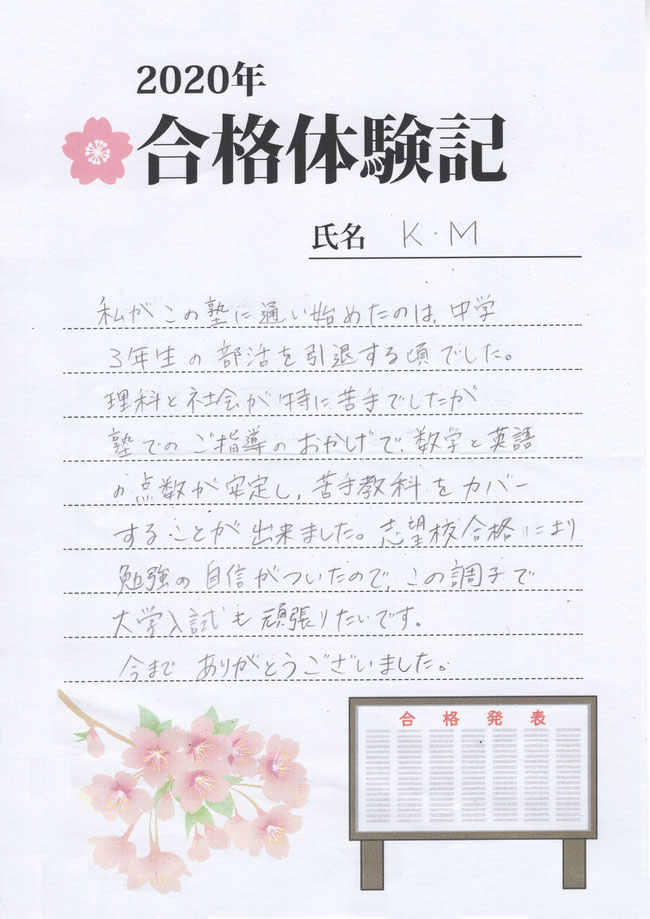 2020年
合格体験記
氏名 K.M
私がこの塾に通い始めたのは、中学
3年生の部活を引退する頃でした。
理科と社会が特に苦手でしたが
塾でのご指導のおかげで、数学と英語
の点数が安定し、苦手教科をカバー
することが出来ました。志望校合格により
勉強の自信がついたので、この調子で
大学入試も頑張りたいです。
今まで ありがとうございました。
合格発表